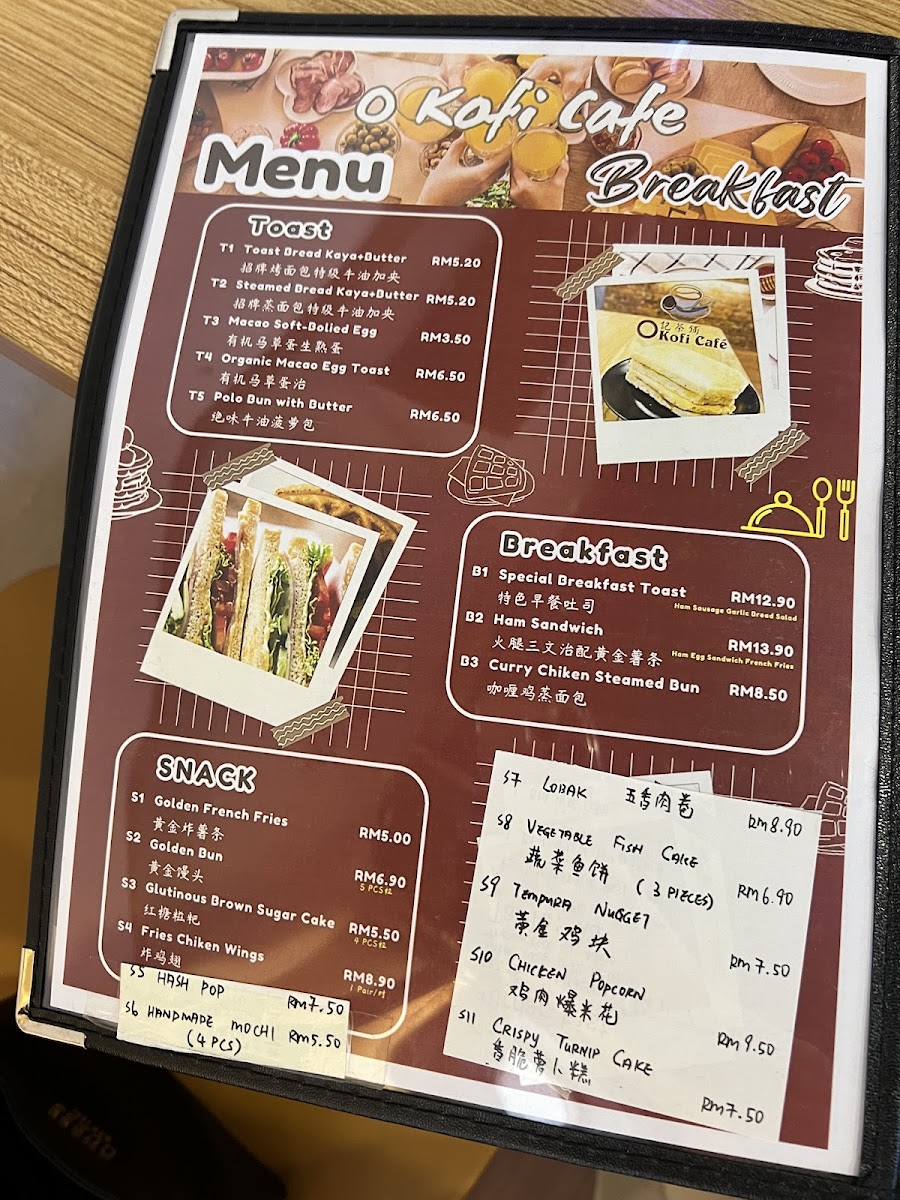 O Kofi Cafe
Menu
Breakfast
Toast
T1 Toast Bread Kaya+Butter RM5.20
招牌烤面包特级牛油加央
T2 Steamed Bread Kaya+Butter RM5.20
招牌蒸面包特级牛油加央
T3 Macao Soft-Bolied Egg RM3.50
有机马草蛋生熟蛋
T4 Organic Macao Egg Toast RM6.50
有机马草蛋治
T5 Polo Bun with Butter RM6.50
绝味牛油菠萝包
記茶舖
O Kofi Café
Breakfast
B1 Special Breakfast Toast RM12.90
特色早餐吐司 Ham Sausage Garlic Bread Salad
B2 Ham Sandwich RM13.90
火腿三文治配黄金薯条 Ham Egg Sandwich French Fries
B3 Curry Chiken Steamed Bun RM8.50
咖喱鸡蒸面包
SNACK
S1 Golden French Fries RM5.00
黄金炸薯条
S2 Golden Bun RM6.90
黄金馒头 5 PCS粒
S3 Glutinous Brown Sugar Cake RM5.50
红糖粘粑 4 PCS粒
S4 Fries Chiken Wings RM8.90
炸鸡翅 1 Pair/对
S5 HASH POP RM7.50
S6 HANDMADE MOCHI RM5.50
(4 PCS)
S7 LOBAK 五香肉卷 RM8.90
S8 VEGETABLE FISH CAKE RM6.90
蔬菜鱼饼 (3 PIECES)
S9 TEMPURA NUGGET RM7.50
黄金鸡块
S10 CHICKEN POPCORN RM9.50
鸡肉爆米花
S11 CRISPY TURNIP CAKE RM7.50
香脆萝卜糕